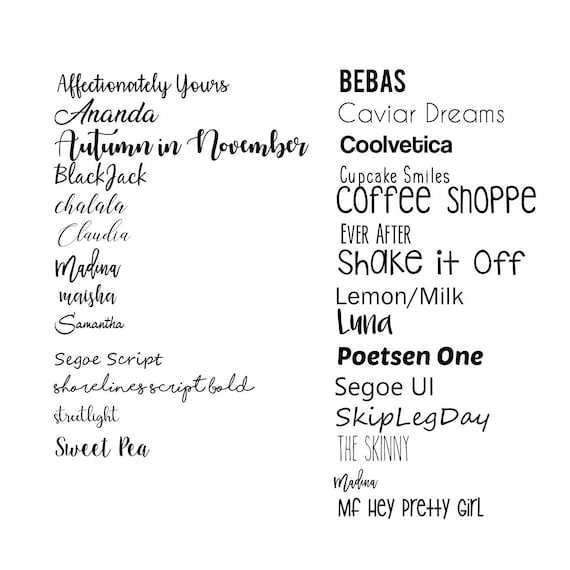 Affectionately Yours
Ananda
Autumn in November
BlackJack
chalala
Claudia
Madina
maisha
Samantha
Segoe Script
shorelines script bold
streetlight
Sweet Pea
BEBAS
Caviar Dreams
Coolvetica
Cupcake Smiles
coffee shoppe
EVER AFTER
Shake it Off
Lemon/Milk
Luna
Poetsen One
Segoe UI
SkipLegDay
THE SKINNY
Madina
MF Hey Pretty Girl